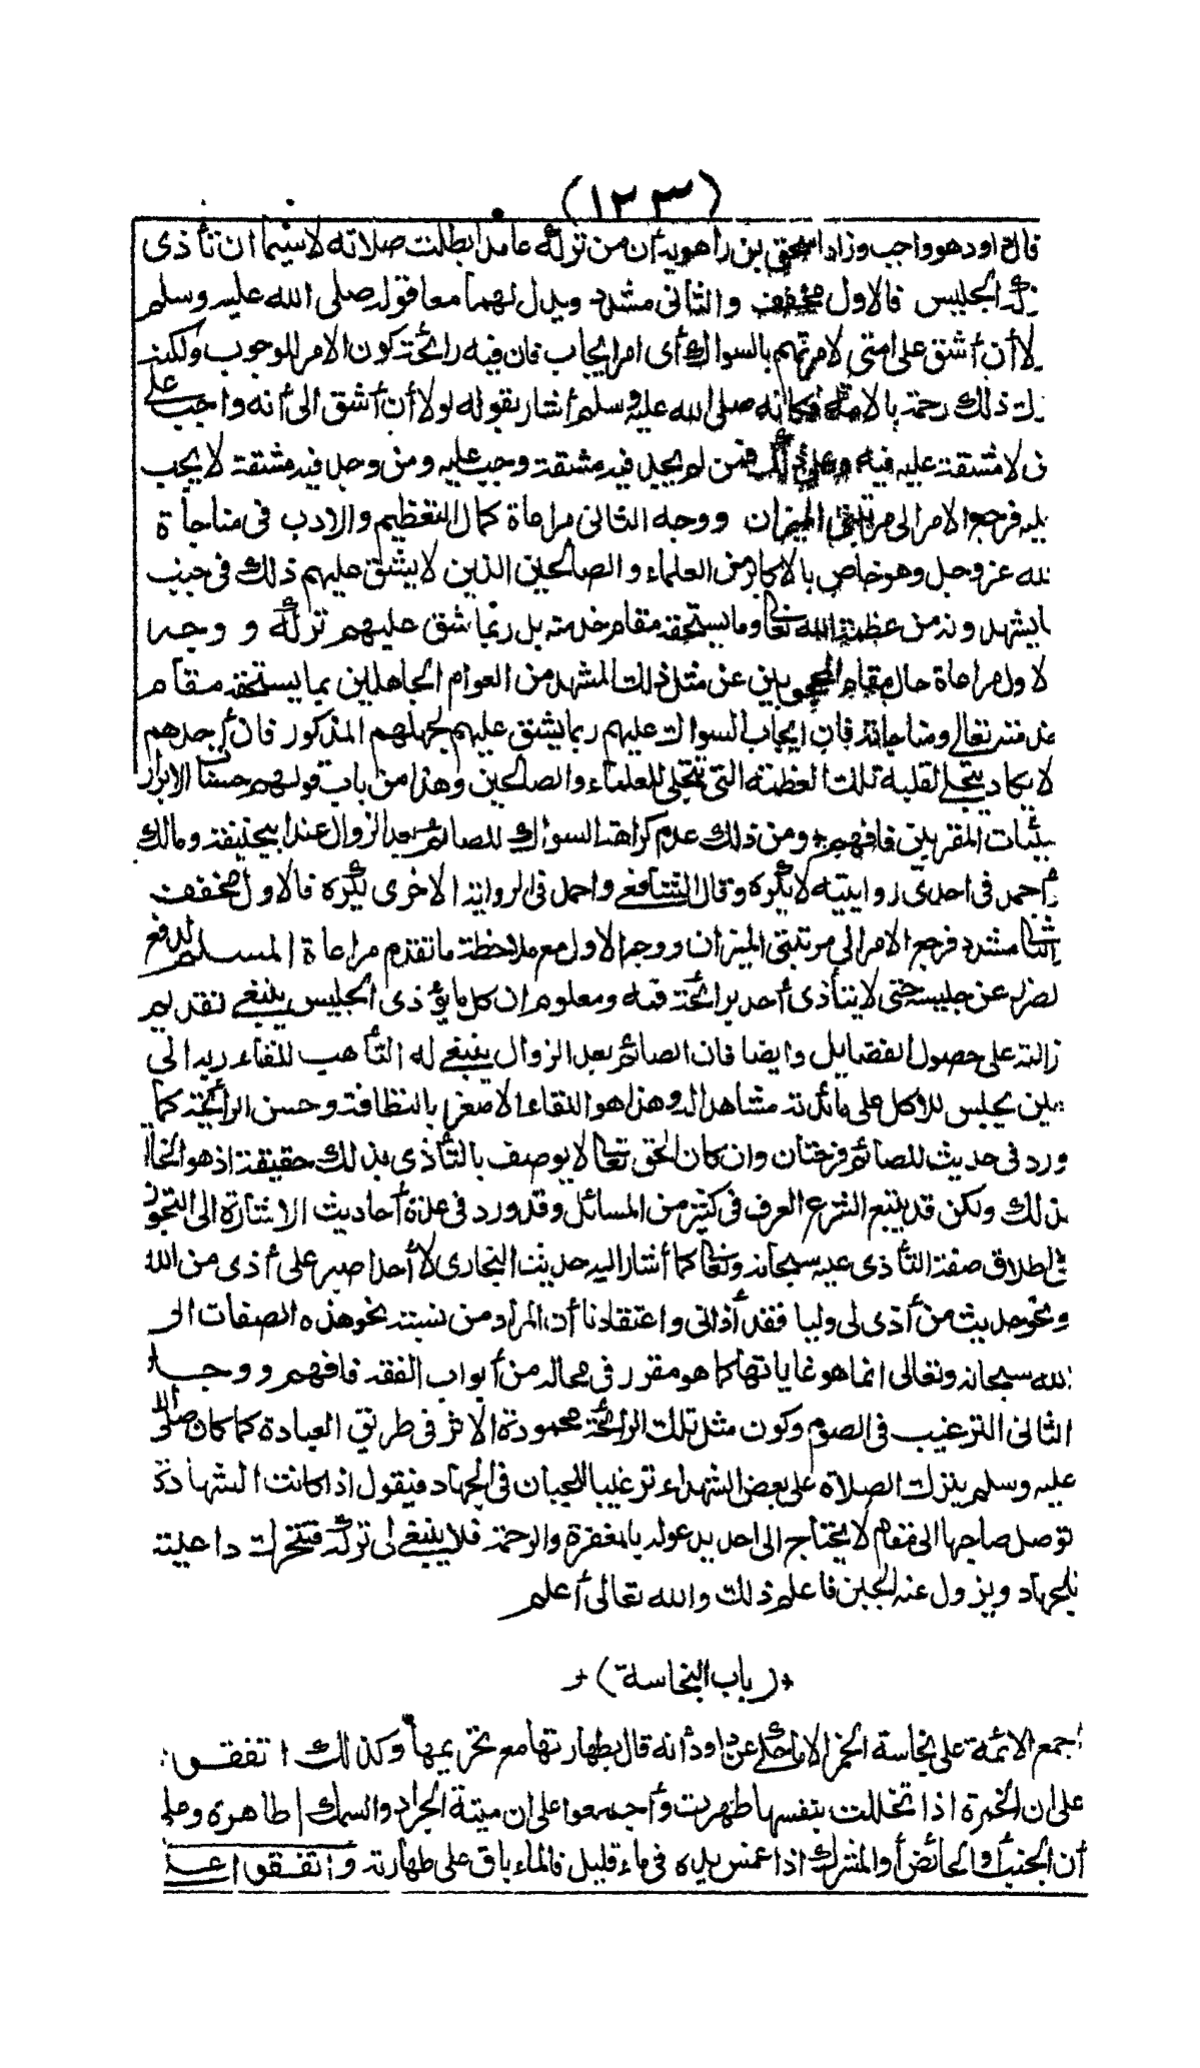 (١٢٣)
داود هو واجب وزاد اسحق بن راهويه أن من تركه عامدا بطلت صلاته لا سيما ان تأذى
الجليس فالاول مخفف والثانى مشدد ويدل لهما معا قوله صلى الله عليه وسلم
لا أن أشق على امتى لامرتهم بالسواك أى امر ايجاب فان فيه رائحة كون الامر للوجوب ولكنه
ذلك رحمة بالامة فكانه صلى الله عليه وسلم أشار بقوله لولا أن أشق الى أنه واجب على
ن لا مشقة عليه فيه وعلى ذلك فمن لم يجد فيه مشقة وجب عليه ومن وجد فيه مشقة لا يجب
ليه فرجع الامر الى مرتبتى الميزان ووجه الثانى مراعاة كمال التعظيم والادب فى مناجاة
لله عز وجل وهو خاص بالاكابر من العلماء والصالحين الذين لا يشق عليهم ذلك فى جنب
ما يشهدونه من عظمة الله تعالى وما يستحقه مقام خدمته بل ربما شق عليهم تركه ووجه
لاول مراعاة حال مقام المحجوبين عن مثل ذلك المشهد من العوام الجاهلين بما يستحقه مقام
خدمته تعالى ومناجاته فان ايجاب السواك عليهم ربما يشق عليهم لجهلهم المذكور فان أحدهم
لا يكاد يتجلى لقلبه تلك العظمة التى تتجلى للعلماء والصالحين وهذا من باب قولهم حسنات الابرار
سيئات المقربين فافهم + ومن ذلك عدم كراهة السواك للصائم بعد الزوال عند ابيحنيفة ومالك
أحمد فى احدى روايتيه لا يكره وقال الشافعى واحمد فى الرواية الاخرى يكره فالاول مخفف
الثانى مشدد فرجع الامر الى مرتبتى الميزان ووجه الاول مع ملاحظة ما تقدم مراعاة المسلم لدفع
لضرر عن جليسه حتى لا يتأذى أحد برائحة فمه ومعلوم ان كل ما يؤذى الجليس ينبغى تقديم
زالته على حصول الفضايل وايضا فان الصائم بعد الزوال ينبغى له التأهب للقاء ربه الى
حين يجلس للاكل على مائدته مشاهدا له وهذا هو اللقاء الاصغر بالنظافة وحسن الرائحة كما
ورد فى حديث للصائم فرحتان وان كان الحق تعالى لا يوصف بالتأذى بذلك حقيقة اذ هو الخالق
لذلك ولكن قد يتبع الشرع العرف فى كثير من المسائل وقد ورد فى عدة أحاديث الاشارة الى التجوز
فى اطلاق صفة التأذى عليه سبحانه وتعالى كما أشار اليه حديث البخارى لا أحد اصبر على أذى من الله
ونحو حديث من أذى لى وليا فقد أذانى واعتقادنا أن المراد من نسبة نحو هذه الصفات الى
الله سبحانه وتعالى انما هو غاياتها كما هو مقرر فى محاله من أبواب الفقه فافهم ووجه
الثانى الترغيب فى الصوم وكون مثل تلك الرائحة محمودة الاثر فى طريق العبادة كما كان صلى الله
عليه وسلم يترك الصلاة على بعض الشهداء ترغيبا للجبان فى الجهاد فيقول اذا كانت الشهادة
توصل صاحبها الى مقام لا يحتاج الى احد يدعو له بالمغفرة والرحمة فلا ينبغى لى تركه فتتحرك داعيته
للجهاد ويزول عنه الجبن فاعلم ذلك والله تعالى أعلم
+ (باب النجاسة) +
أجمع الائمة على نجاسة الخمر الا ما حكى عن داود أنه قال بطهارتها مع تحريمها وكذلك اتفقوا
على ان الخمرة اذا تخللت بنفسها طهرت وأجمعوا على ان ميتة الجراد والسمك طاهرة وعلى
أن الجنب والحائض أو المشرك اذا غمس يده فى ماء قليل فالماء باق على طهارته واتفقوا على